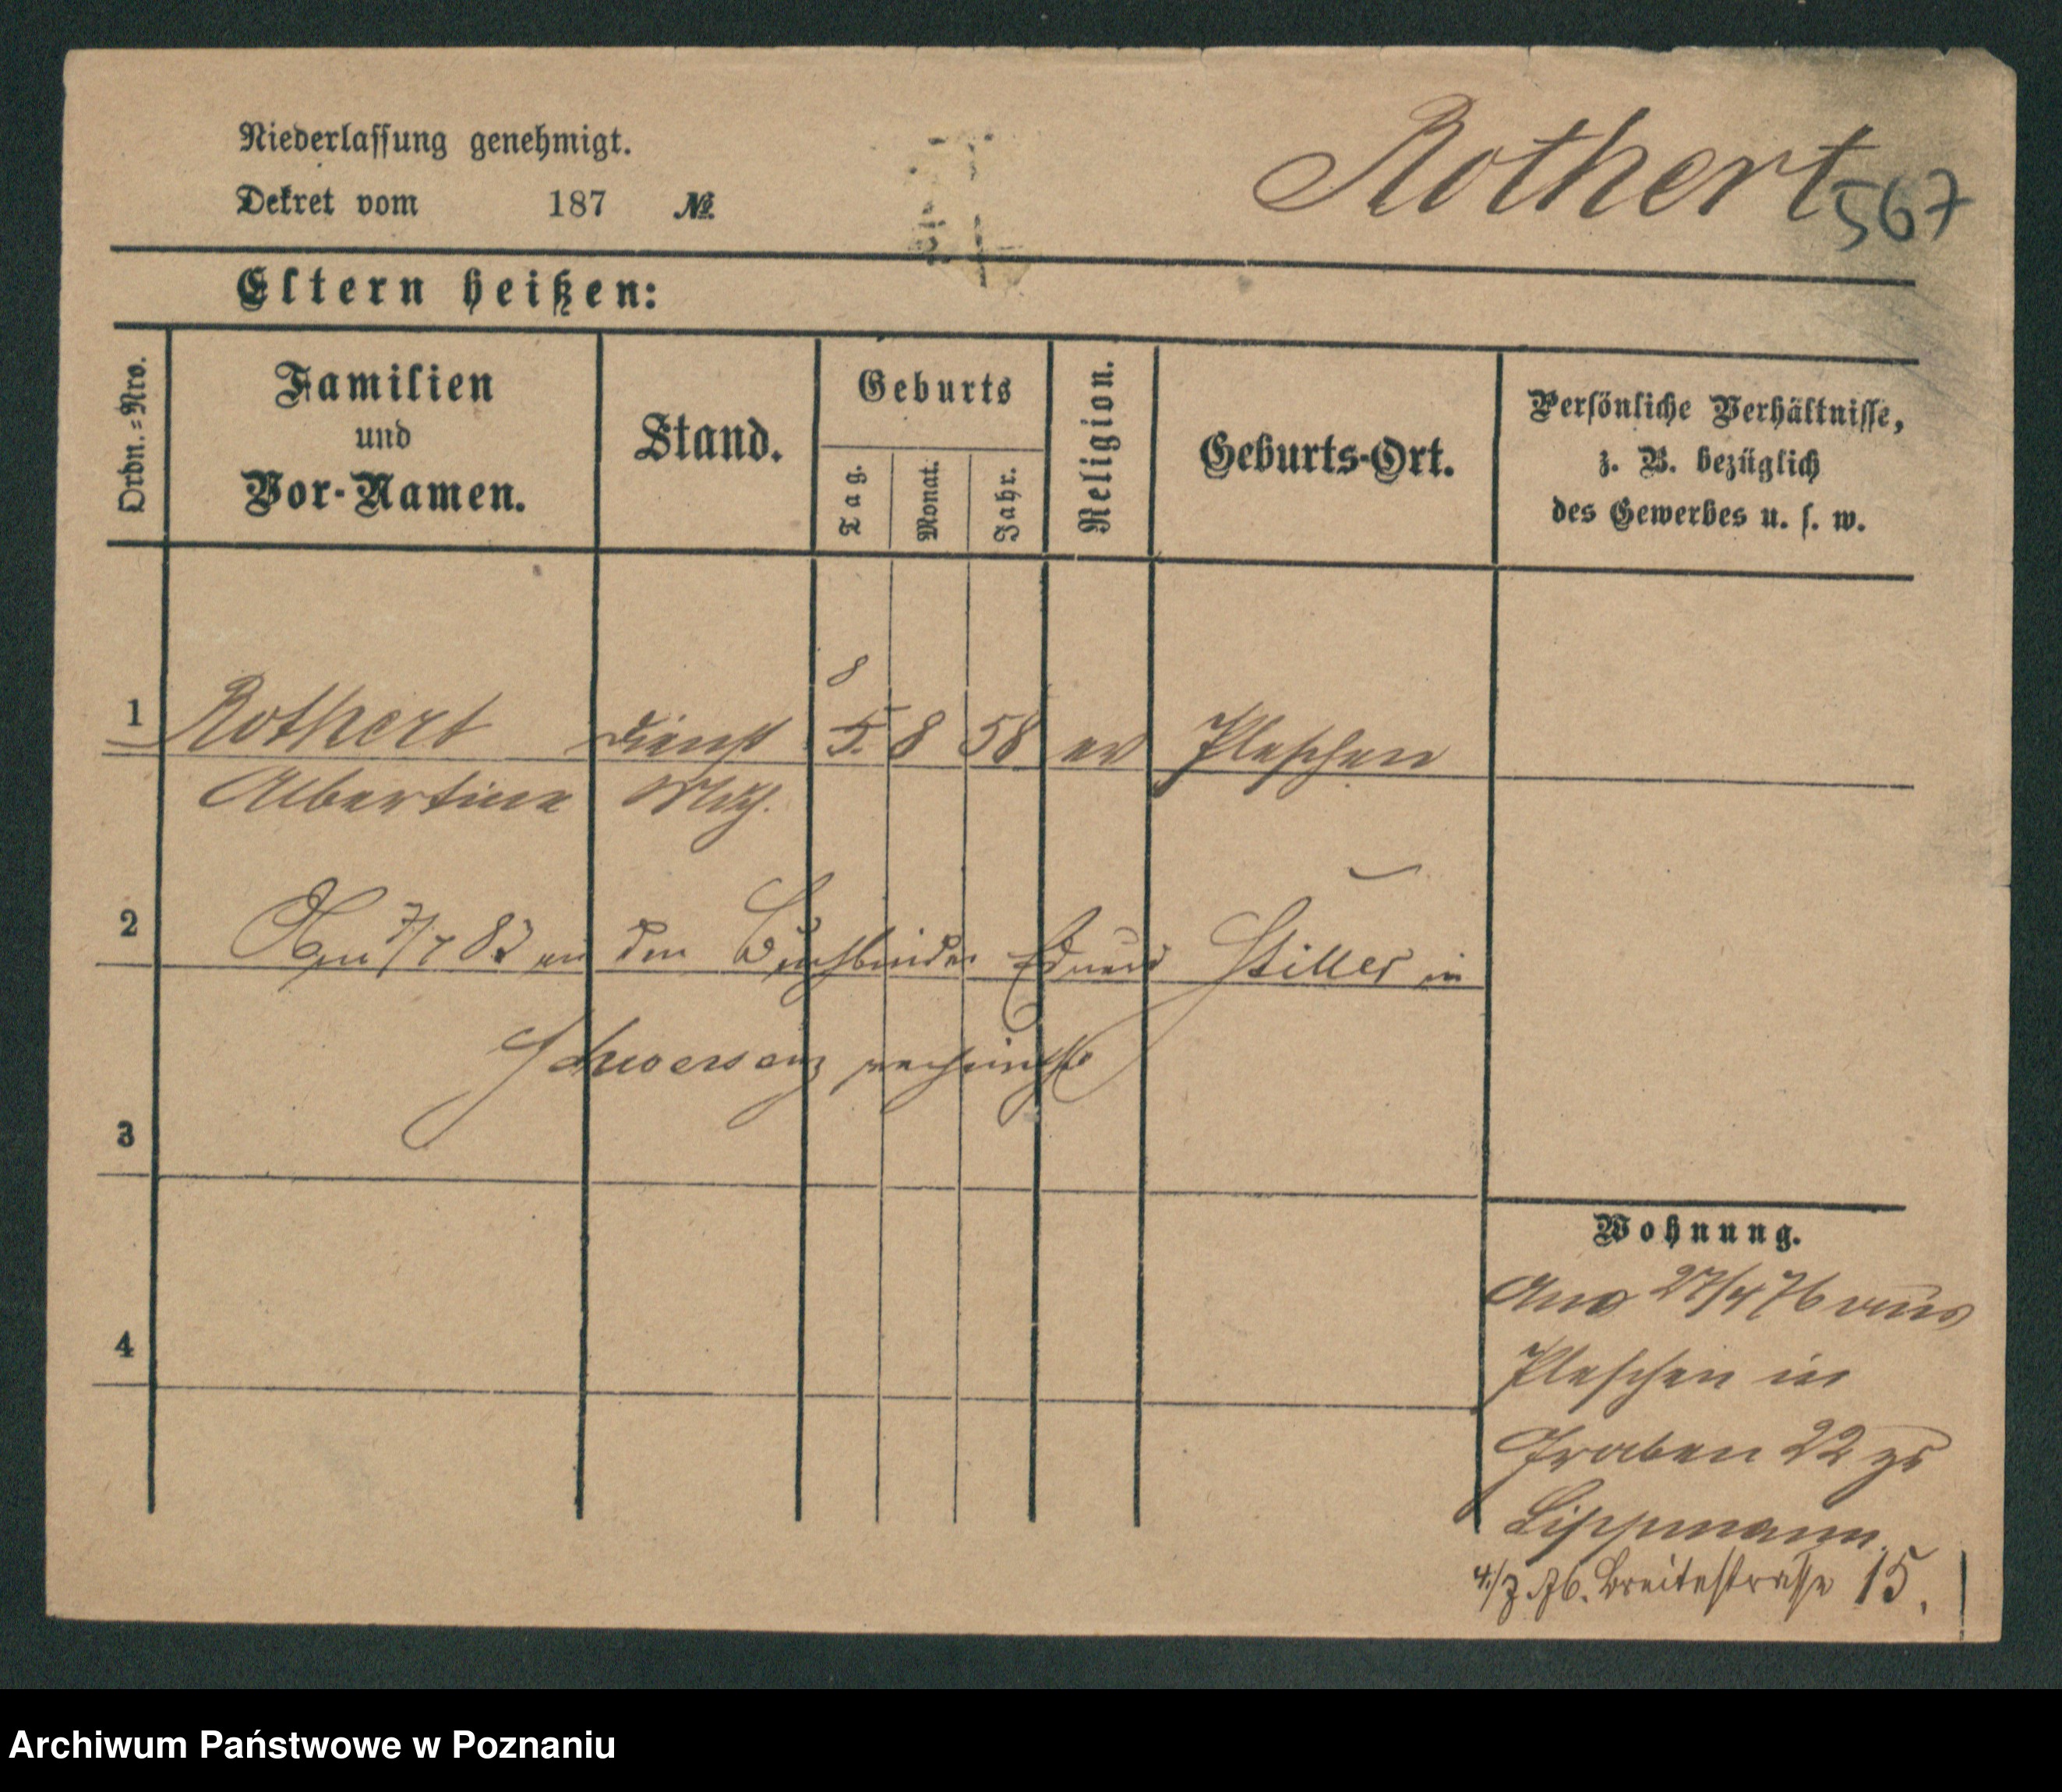 Niederlassung genehmigt.
Dekret vom 187 №
Rothert
567
Eltern heißen:
Ordn.=Nro.
Familien
und
Vor-Namen.
Stand.
Geburts
Tag.
Monat.
Jahr.
Religion.
Geburts-Ort.
Persönliche Verhältnisse,
z. B. bezüglich
des Gewerbes u. s. w.
8
1 Rothert Dienst 5. 8 58 ev Pleschen
Albertine
2 83 an den Buchbinder Eduard Stiller in
Schwersenz verheirathet
3
4
Wohnung.
27/4 76 aus
Pleschen in
Graben 22 zu
Lippmann.
4/7.76. Breitestrasse 15.
Archiwum Państwowe w Poznaniu